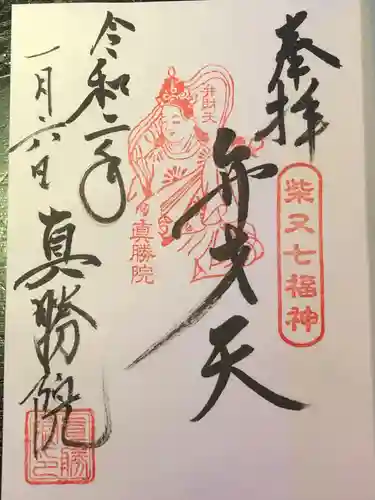 奉拝
柴又七福神
弁才天
弁財天
眞勝院
令和二年
一月六日
真勝院